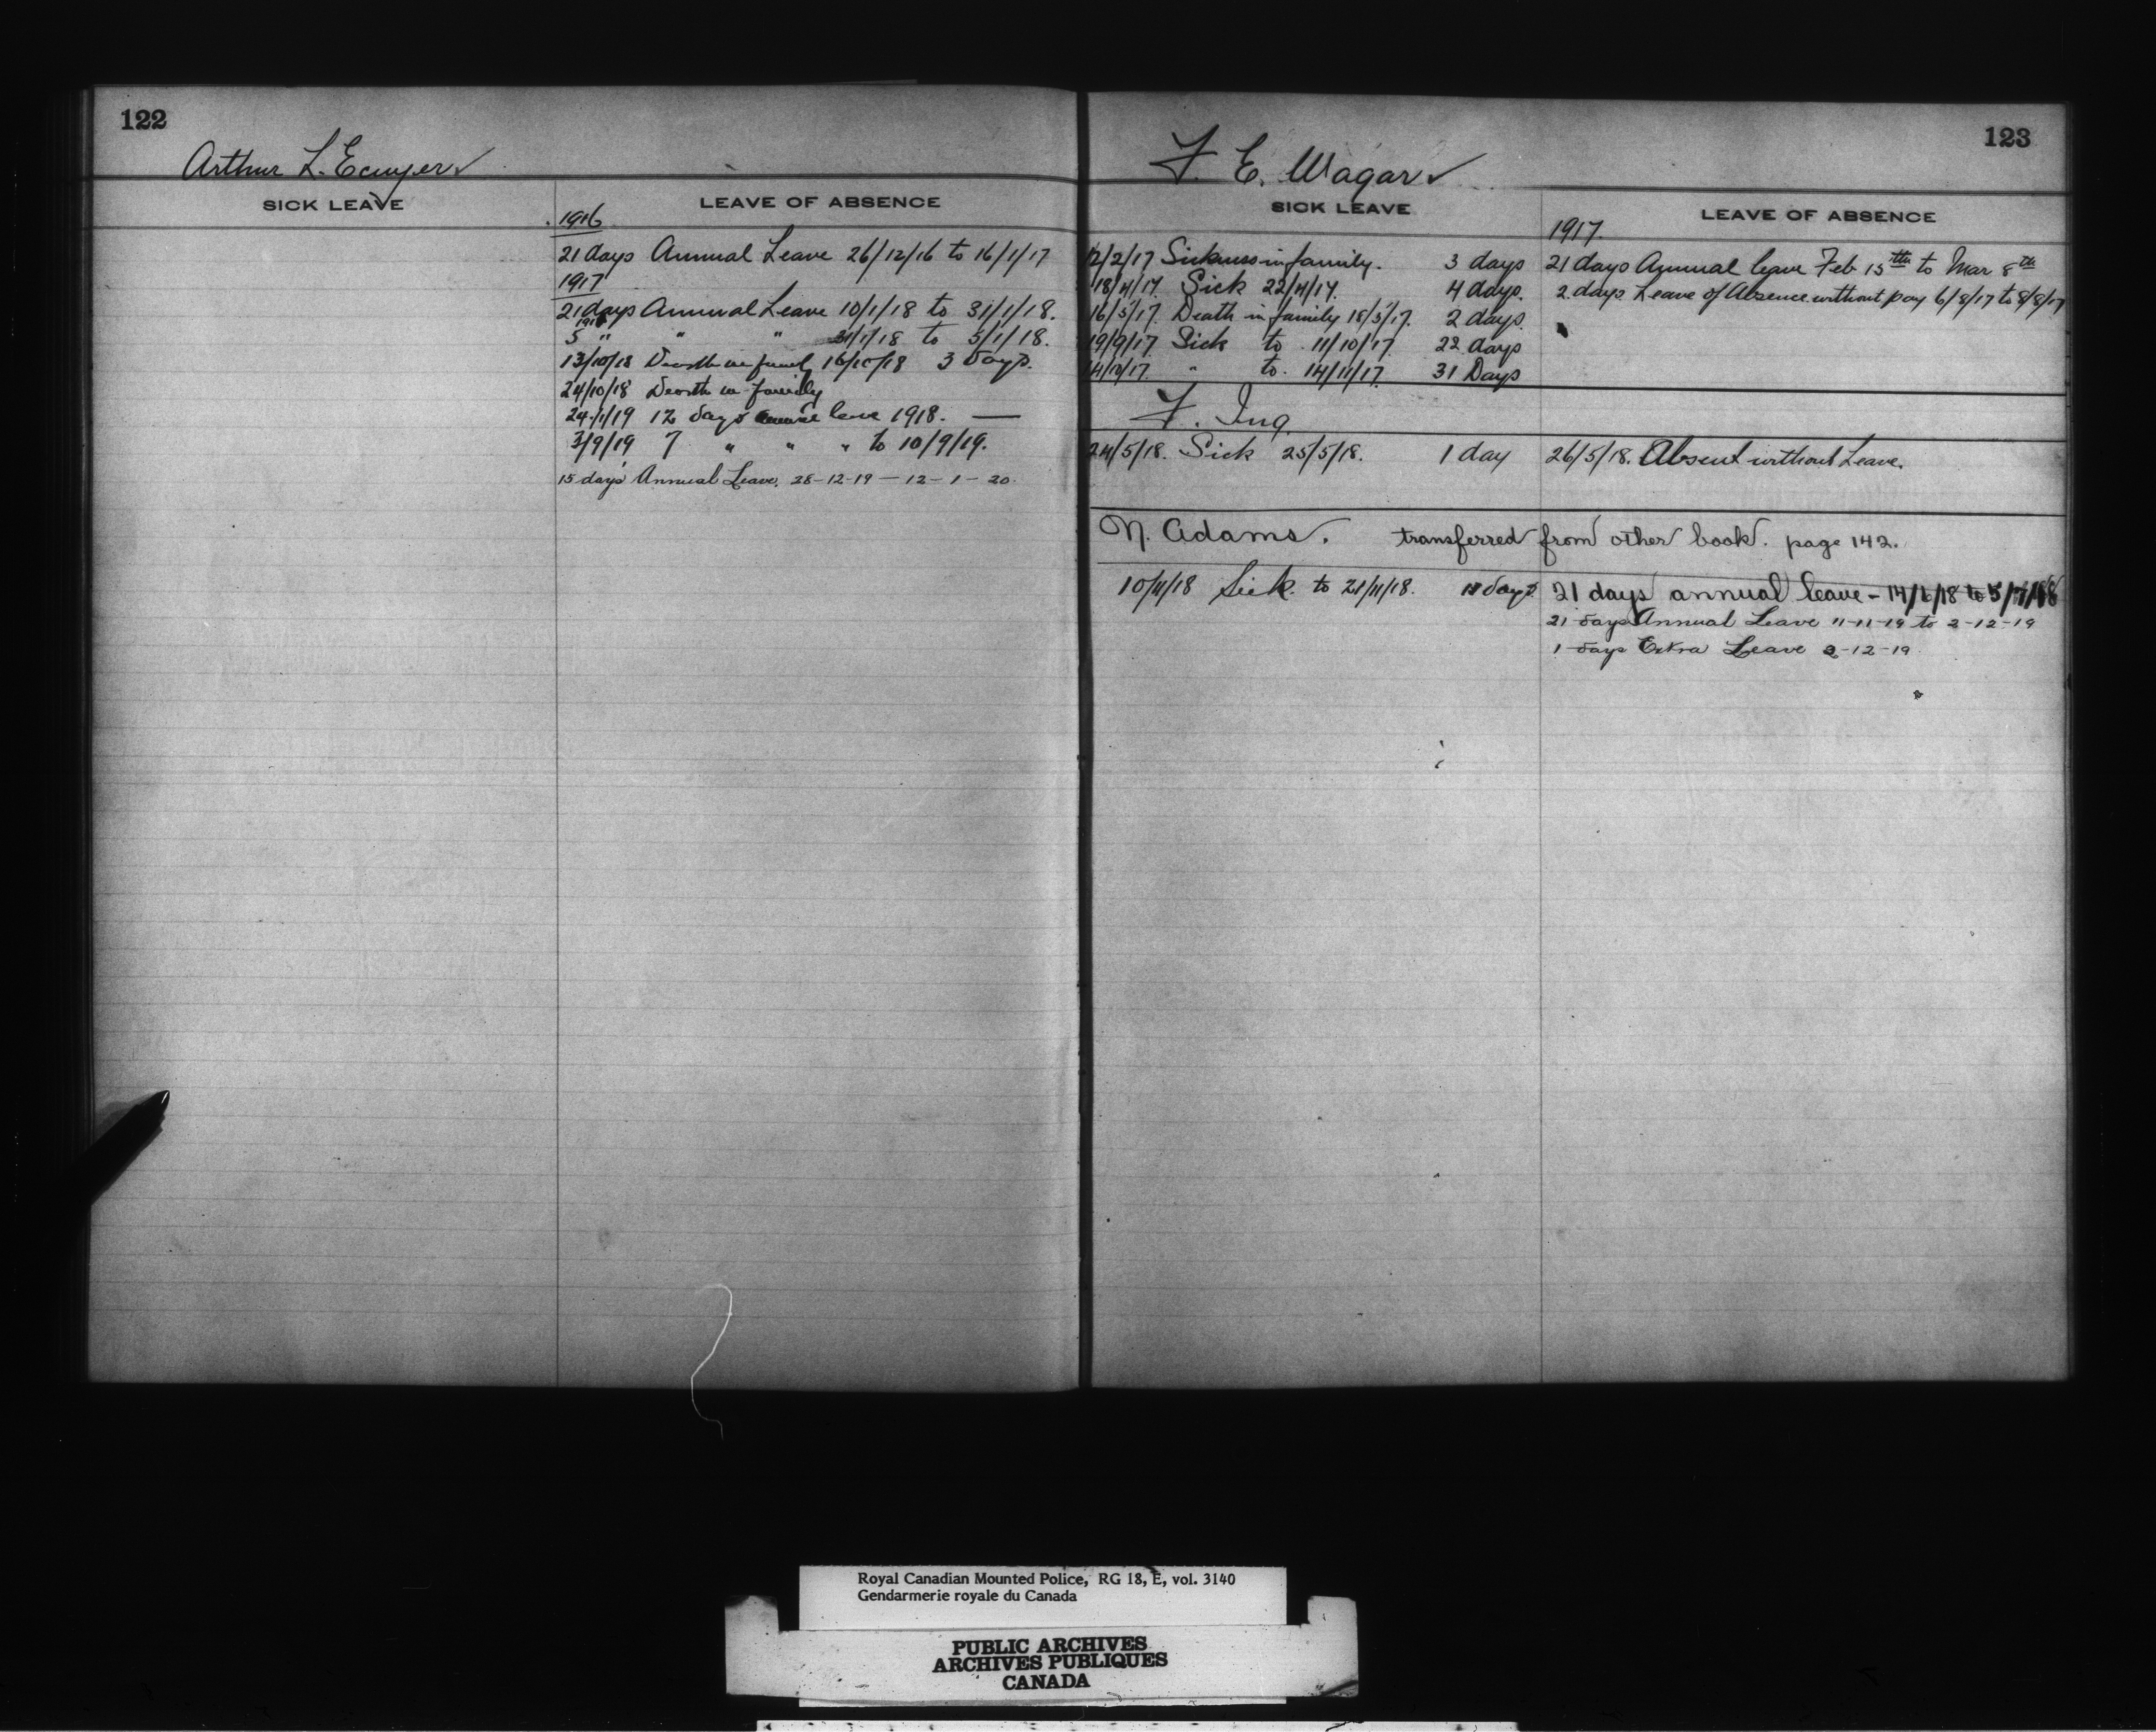 122
Arthur L. Ecuyer
SICK LEAVE
LEAVE OF ABSENCE
1916
21 days Annual Leave 26/12/16 to 16/1/17
1917
21 days Annual Leave 10/1/18 to 31/1/18.
1918
5 " " 31/1/18 to 5/1/18.
13/10/18 Death in family 16/10/18 3 days.
24/10/18 Death in family
24/1/19 12 days annual leave 1918. —
3/9/19 7 " " " to 10/9/19.
15 days Annual Leave. 28-12-19 — 12-1-20.
123
F. E. Wagar
SICK LEAVE
LEAVE OF ABSENCE
1917.
12/2/17 Sickness in family. 3 days
21 days Annual leave Feb 15th to Mar 8th
18/4/17. Sick 22/4/17. 4 days.
2 days Leave of Absence without pay 6/8/17 to 8/8/17
16/5/17. Death in family 18/5/17. 2 days.
19/9/17. Sick to 11/10/17. 22 days
14/10/17. " to 14/11/17. 31 Days
F. Ing.
24/5/18. Sick 25/5/18. 1 day
26/5/18. Absent without Leave.
N. Adams. transferred from other book. page 142.
10/11/18 Sick. to 21/11/18. days
21 days annual leave - 14/6/18 to 5/7/18
21 days Annual Leave 11-11-19 to 2-12-19
1 days Extra Leave 2-12-19
Royal Canadian Mounted Police, RG 18, E, vol. 3140
Gendarmerie royale du Canada
PUBLIC ARCHIVES
ARCHIVES PUBLIQUES
CANADA